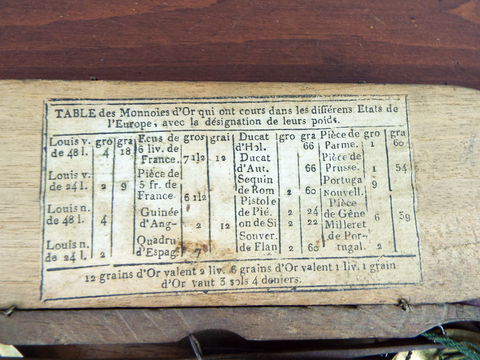 TABLE des Monnoies d'Or qui ont cours dans les différens Etats de
l'Europe, avec la désignation de leurs poids.
Louis v. gro gra Ecus de gros grai Ducat gro gra Pièce de gro gra
de 48 l. 4 18 6 liv. de d'Hol. 66 Parme. 1 60
France. 7 1|2 12 Ducat Pièce de
d'Aut. 66 Prusse. 1 54
Louis v. Pièce de Sequin Portuga 9
de 24 l. 2 9 5 fr. de de Rom 2 60 nouvell.
France 6 1|2 Pistole Pièce
Louis n. Guinée de Pié. 2 24 de Gêne 6 39
de 48 l. 4 d'Ang- 2 12 on de Si 2 22 Milleret
Louis n. Quadru Souver. de Por-
de 24 l. 2 d'Espag 7 de Flan 2 60 tugal. 2
12 grains d'Or valent 2 liv. 6 grains d'Or valent 1 liv. 1 grain
d'Or vaut 3 sols 4 deniers.